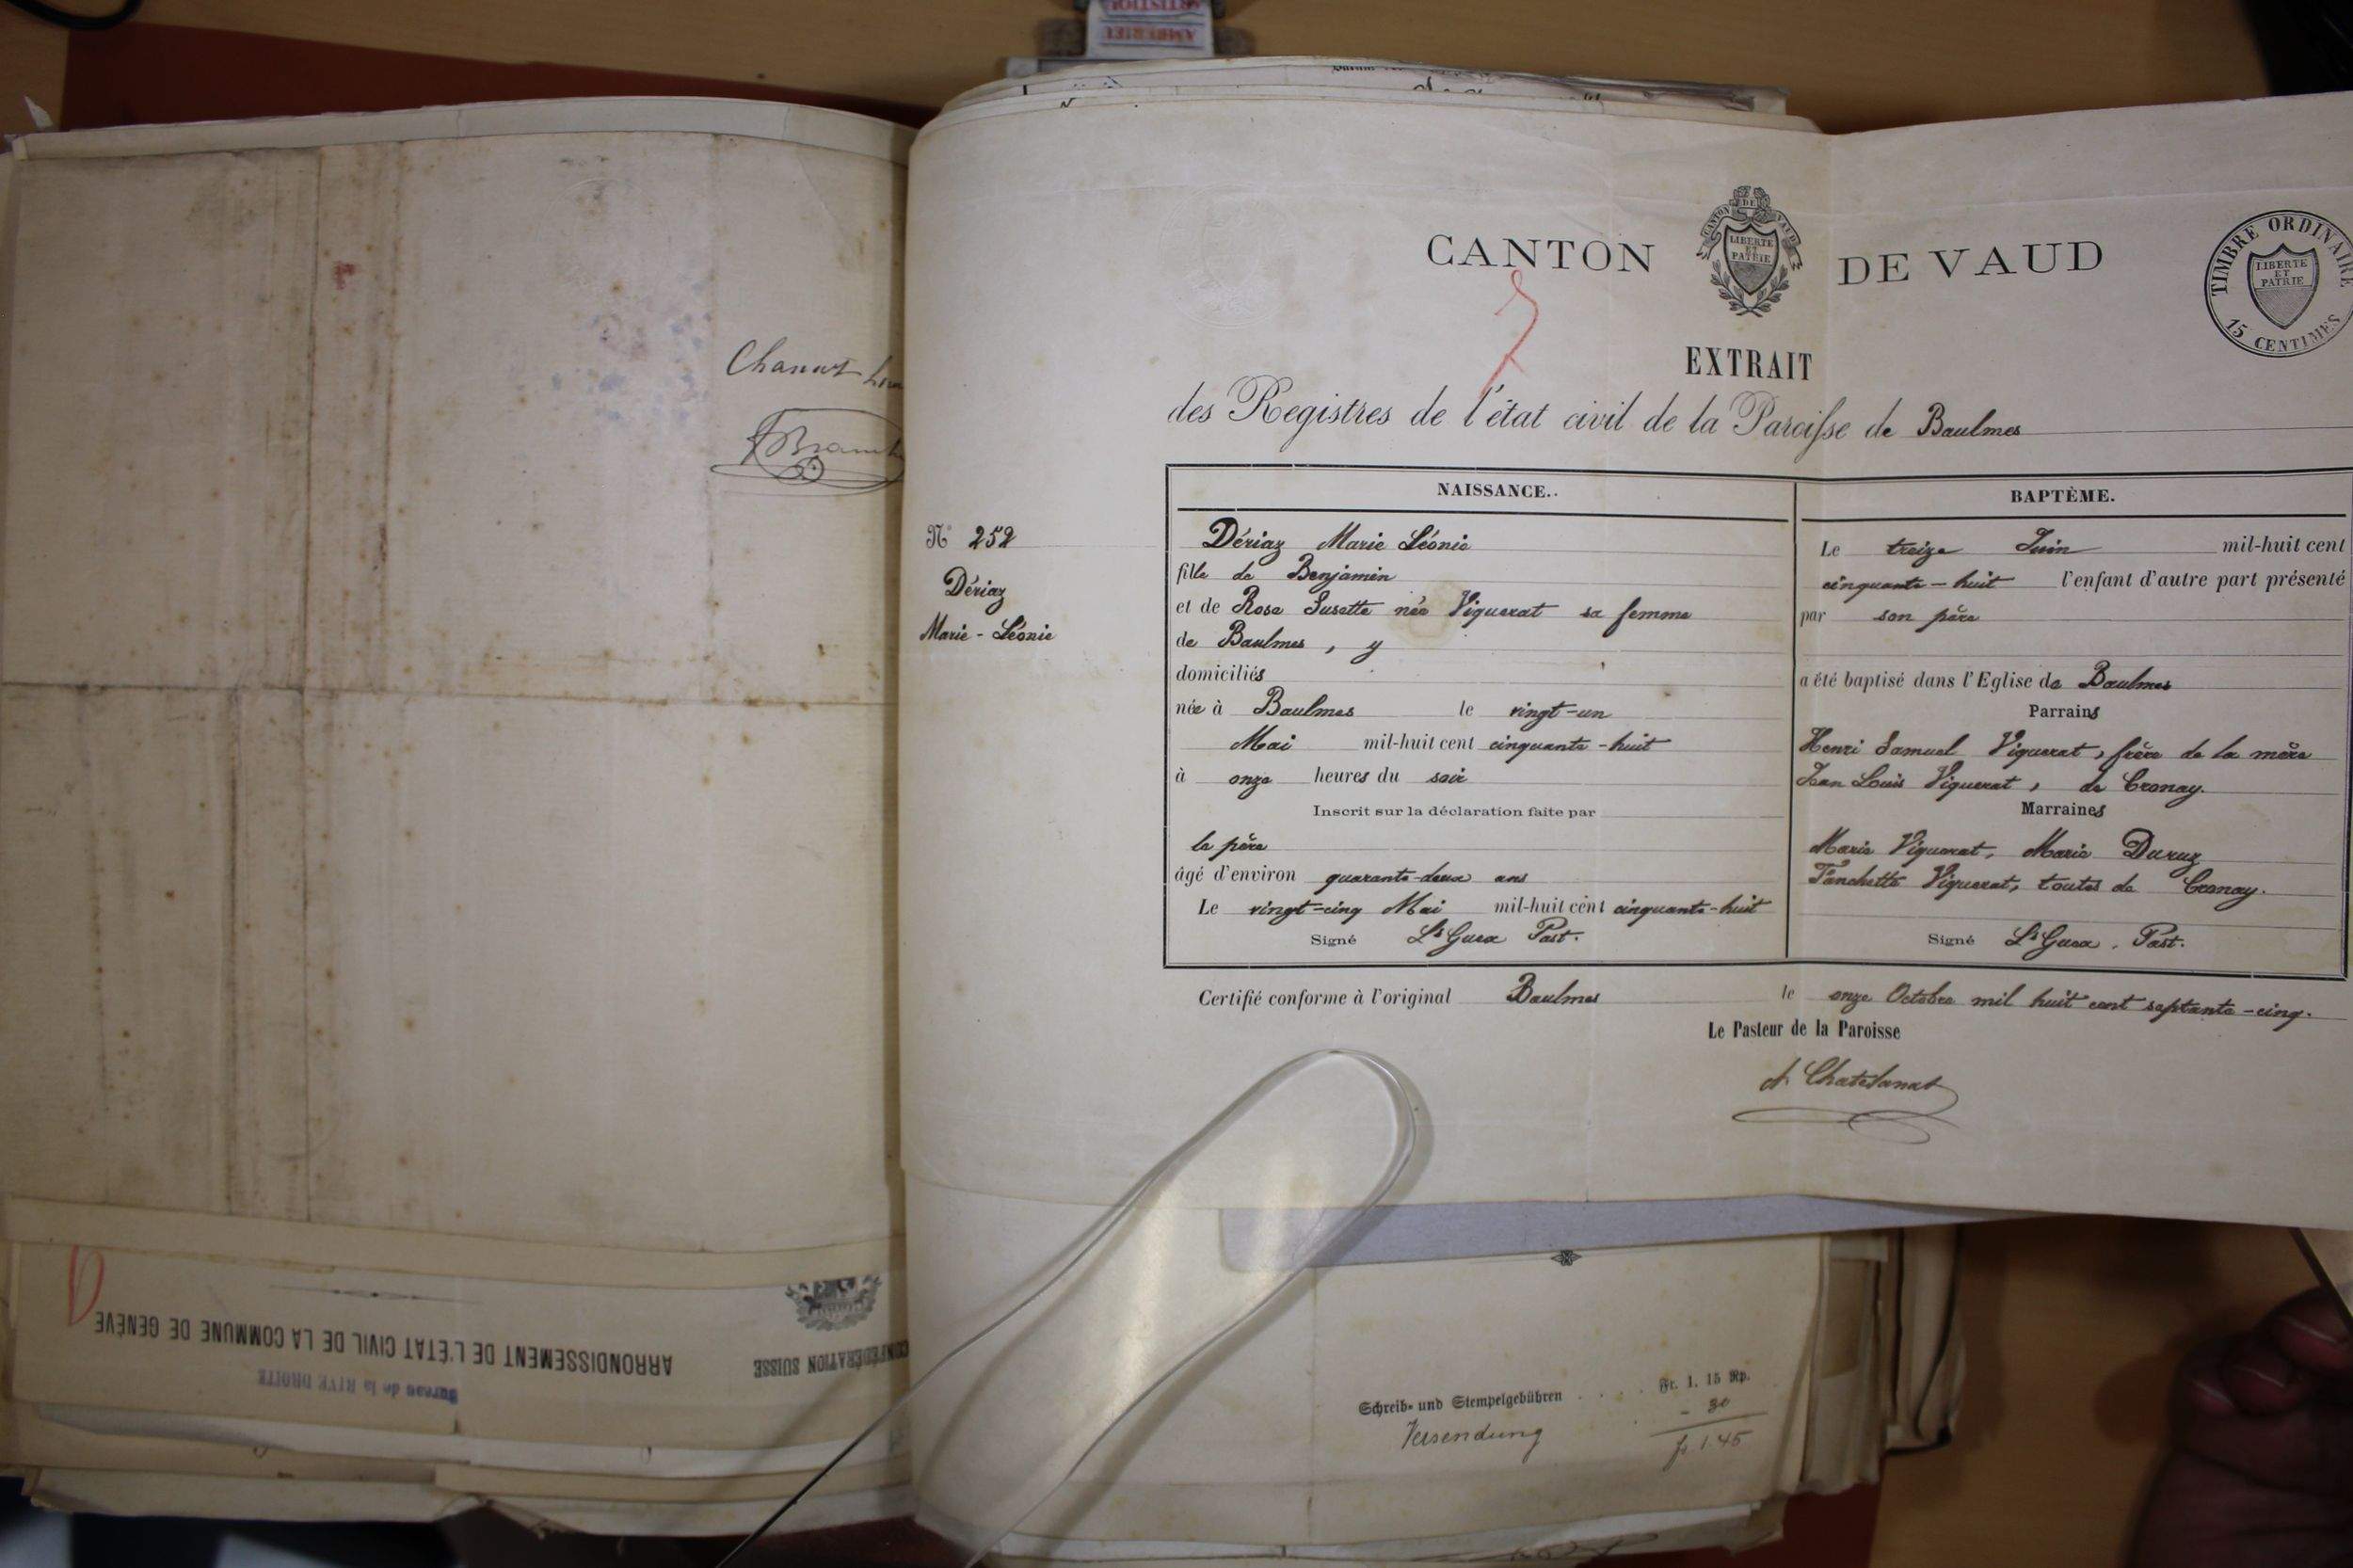 Chanut
N° 252
Dériaz
Marie - Léonie
CANTON DE VAUD
CANTON DE VAUD
LIBERTÉ
ET
PATRIE
TIMBRE ORDINAIRE
LIBERTE
ET
PATRIE
15 CENTIMES
7
EXTRAIT
des Registres de l'état civil de la Paroisse de Baulmes
NAISSANCE..
Dériaz Marie Léonie
fille de Benjamin
et de Rose Susette née Viguerat sa femme
de Baulmes, y
domiciliés
née à Baulmes le vingt-un
Mai mil-huit cent cinquante-huit
à onze heures du soir
Inscrit sur la déclaration faite par
le père
âgé d'environ quarante-deux ans
Le vingt-cinq Mai mil-huit cent cinquante-huit
Signé Ls Past.
BAPTÈME.
Le treize Juin mil-huit cent
cinquante-huit l'enfant d'autre part présenté
par son père
a été baptisé dans l'Eglise de Baulmes
Parrains
Henri Samuel Viguerat, frère de la mère
Jean Louis Viguerat, de Cronay.
Marraines
Marie Viguerat, Marie Duruz
Fanchette Viguerat, toutes de Cronay.
Signé Ls Past.
Certifié conforme à l'original Baulmes le onze Octobre mil huit cent septante-cinq.
Le Pasteur de la Paroisse
A. Chatelanat
CONFÉDÉRATION SUISSE
ARRONDISSEMENT DE L'ÉTAT CIVIL DE LA COMMUNE DE GENÈVE
Bureau de la RIVE DROITE
Schreib- und Stempelgebühren . . . . Fr. 1. 15 Rp.
Versendung - 30
fr. 1 45